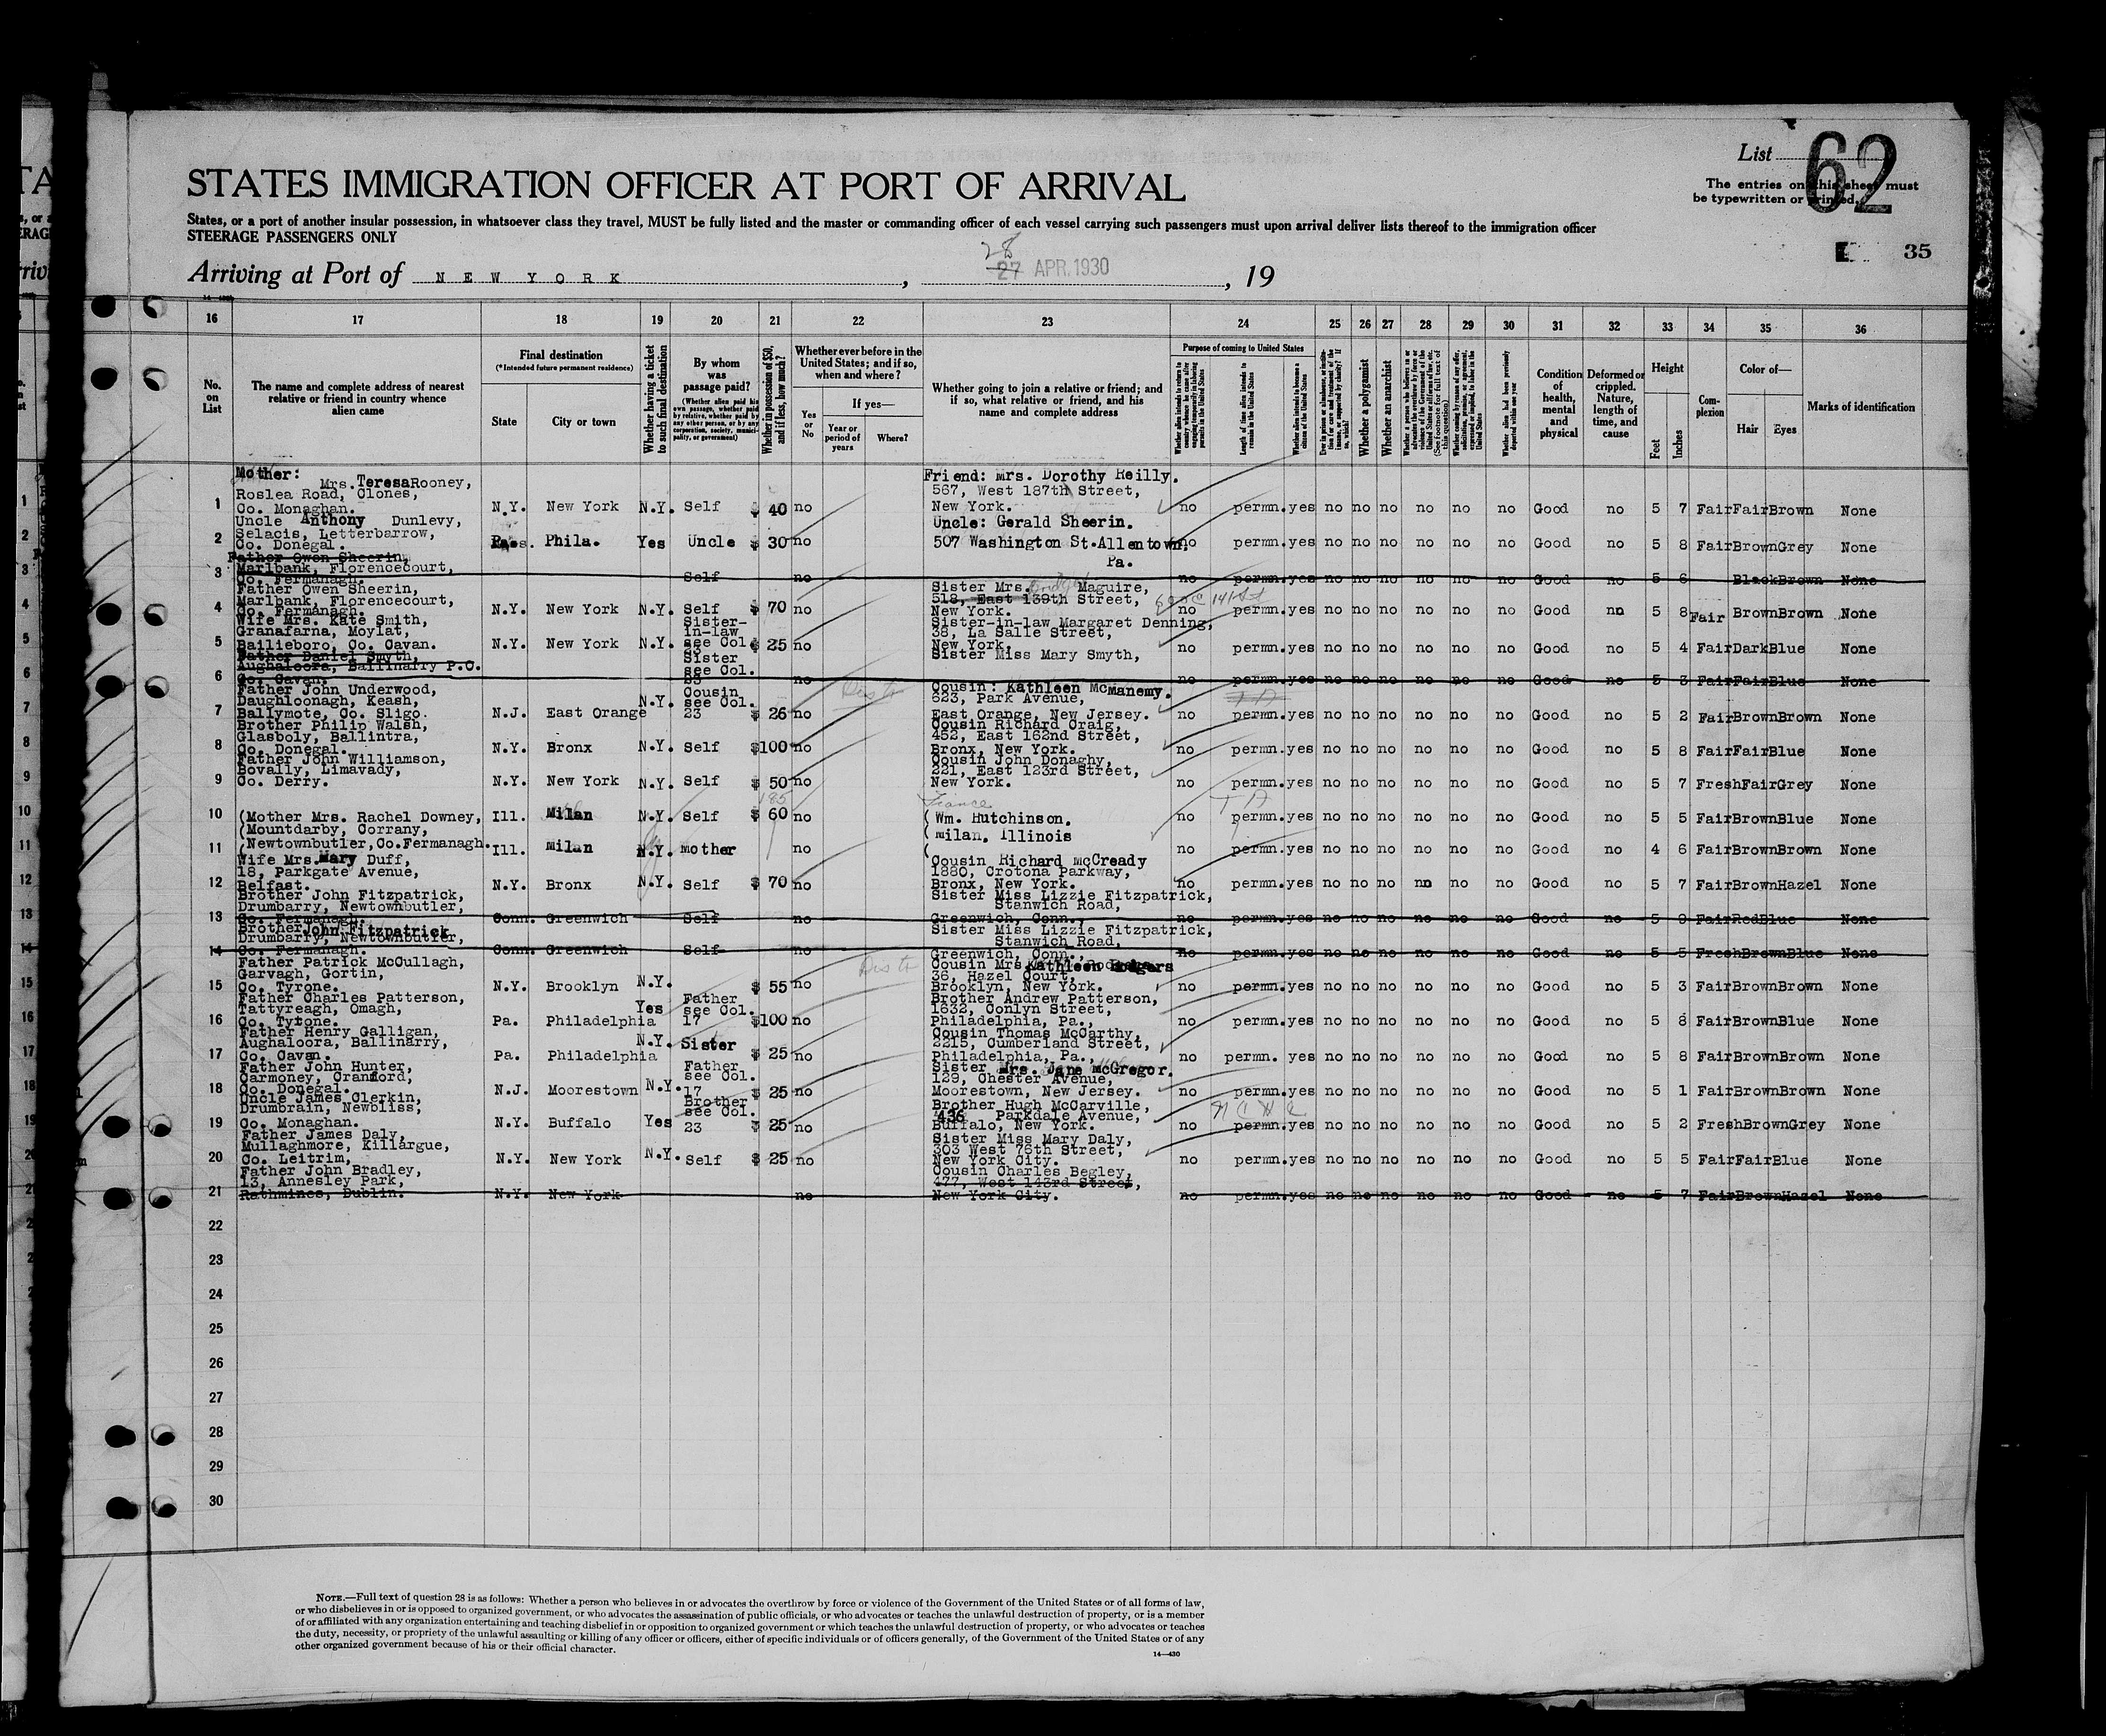 List 62
The entries on this sheet must
be typewritten or printed.
STATES IMMIGRATION OFFICER AT PORT OF ARRIVAL
States, or a port of another insular possession, in whatsoever class they travel, MUST be fully listed and the master or commanding officer of each vessel carrying such passengers must upon arrival deliver lists thereof to the immigration officer
STEERAGE PASSENGERS ONLY
35
Arriving at Port of NEW YORK, 28 27 APR. 1930, 19
16 17 18 19 20 21 22 23 24 25 26 27 28 29 30 31 32 33 34 35 36
No. on List
The name and complete address of nearest relative or friend in country whence alien came
Final destination
(*Intended future permanent residence)
State
City or town
Whether having a ticket to such final destination
By whom was passage paid?
(Whether alien paid his own passage, whether paid by relative, whether paid by any other person, or by any corporation, society, municipality, or government)
Whether in possession of $50, and if less, how much?
Whether ever before in the United States; and if so, when and where?
Yes or No
If yes—
Year or period of years
Where?
Whether going to join a relative or friend; and if so, what relative or friend, and his name and complete address
Purpose of coming to United States
Whether alien intends to return to country whence he came after engaging temporarily in laboring pursuits in the United States
Length of time alien intends to remain in the United States
Whether alien intends to become a citizen of the United States
Whether a polygamist
Whether an anarchist
Condition of health, mental and physical
Deformed or crippled. Nature, length of time, and cause
Height
Feet
Inches
Complexion
Color of—
Hair
Eyes
Marks of identification
1 Mother: Mrs. Teresa Rooney, Roslea Road, Clones, Co. Monaghan. N.Y. New York N.Y. Self $ 40 no Friend: Mrs. Dorothy Reilly. 567, West 187th Street, New York. no permn. yes no no no no no no Good no 5 7 Fair Fair Brown None
2 Uncle Anthony Dunlevy, Selacis, Letterbarrow, Co. Donegal. Phila. Yes Uncle $ 30 no Uncle: Gerald Sheerin. 507 Washington St. Allentown, Pa. no permn. yes no no no no no no Good no 5 8 Fair Brown Grey None
3 Father Owen Sheerin, Marlbank, Florencecourt, Co. Fermanagh. Self no no permn. yes no no no no no no Good no 5 6 Black Brown None
4 Father Owen Sheerin, Marlbank, Florencecourt, Co. Fermanagh. N.Y. New York N.Y. Self $ 70 no Sister Mrs. Maguire, 518, East 139th Street, New York. no permn. yes no no no no no no Good no 5 8 Fair Brown Brown None
5 Wife Mrs. Kate Smith, Granafarna, Moylat, Bailieboro, Co. Cavan. N.Y. New York N.Y. Sister-in-law see Col. $ 25 no Sister-in-law Margaret Denning, 38, La Salle Street, New York. no permn. yes no no no no no no Good no 5 4 Fair Dark Blue None
6 Father Daniel Smyth, Aughaloora, Ballinarry P.O. Co. Cavan. Sister see Col. 23 no Sister Miss Mary Smyth, no permn. yes no no no no no no Good no 5 3 Fair Fair Blue None
7 Father John Underwood, Daughloonagh, Keash, Ballymote, Co. Sligo. N.J. East Orange N.Y. Cousin see Col. 23 $ 26 no Cousin: Kathleen McManemy. 623, Park Avenue, East Orange, New Jersey. no permn. yes no no no no no no Good no 5 2 Fair Brown Brown None
8 Brother Philip Walsh, Glasboly, Ballintra, Co. Donegal. N.Y. Bronx N.Y. Self $100 no Cousin Richard Craig, 452, East 162nd Street, Bronx, New York. no permn. yes no no no no no no Good no 5 8 Fair Fair Blue None
9 Father John Williamson, Bovally, Limavady, Co. Derry. N.Y. New York N.Y. Self $ 50 no Cousin John Donaghy, 221, East 123rd Street, New York. no permn. yes no no no no no no Good no 5 7 Fresh Fair Grey None
10 (Mother Mrs. Rachel Downey, (Mountdarby, Corrany, Ill. Milan N.Y. Self $ 60 no (Wm. Hutchinson. no permn. yes no no no no no no Good no 5 5 Fair Brown Blue None
11 (Newtownbutler, Co. Fermanagh. Ill. Milan N.Y. mother no (milan. Illinois no permn. yes no no no no no no Good no 4 6 Fair Brown Brown None
12 Wife Mrs. Mary Duff, 18, Parkgate Avenue, Belfast. N.Y. Bronx N.Y. Self $ 70 no Cousin Richard McCready 1880, Crotona Parkway, Bronx, New York. no permn. yes no no no no no no Good no 5 7 Fair Brown Hazel None
13 Brother John Fitzpatrick, Drumbarry, Newtownbutler, Co. Fermanagh. Conn. Greenwich Self no Sister Miss Lizzie Fitzpatrick, Stanwich Road, Greenwich, Conn., no permn. yes no no no no no no Good no 5 9 Fair Red Blue None
14 Brother John Fitzpatrick Drumbarry, Newtownbutler, Co. Fermanagh. Conn. Greenwich Self no Sister Miss Lizzie Fitzpatrick, Stanwich Road, Greenwich, Conn., no permn. yes no no no no no no Good no 5 5 Fresh Brown Blue None
15 Father Patrick McCullagh, Garvagh, Gortin, Co. Tyrone. N.Y. Brooklyn N.Y. $ 55 no Cousin Mrs. Kathleen Rodgers 36, Hazel Court, Brooklyn, New York. no permn. yes no no no no no no Good no 5 3 Fair Brown Brown None
16 Father Charles Patterson, Tattyreagh, Omagh, Co. Tytone. Pa. Philadelphia Yes Father see Col. 17 $100 no Brother Andrew Patterson, 1632, Conlyn Street, Philadelphia, Pa., no permn. yes no no no no no no Good no 5 8 Fair Brown Blue None
17 Father Henry Galligan, Aughaloora, Ballinarry, Co. Cavan. Pa. Philadelphia N.Y. Sister $ 25 no Cousin Thomas McCarthy, 2215, Cumberland Street, Philadelphia, Pa., no permn. yes no no no no no no Good no 5 8 Fair Brown Brown None
18 Father John Hunter, Carmoney, Cranford, Co. Donegal. N.J. Moorestown N.Y. Father see Col. 17 $ 25 no Sister Mrs. Jane McGregor. 129, Chester Avenue, Moorestown, New Jersey. no permn. yes no no no no no no Good no 5 1 Fair Brown Brown None
19 Uncle James Clerkin, Drumbrain, Newbliss, Co. Monaghan. N.Y. Buffalo Yes Brother see Col. 23 $ 25 no Brother Hugh McCarville, 436 Parkdale Avenue, Buffalo, New York. no permn. yes no no no no no no Good no 5 2 Fresh Brown Grey None
20 Father James Daly, Mullaghmore, Killargue, Co. Leitrim. N.Y. New York N.Y. Self $ 25 no Sister Miss Mary Daly, 303 West 76th Street, New York City. no permn. yes no no no no no no Good no 5 5 Fair Fair Blue None
21 Father John Bradley, 13, Annesley Park, Rathmines, Dublin. N.Y. New York no Cousin Charles Begley, 477, West 143rd Street, New York City. no permn. yes no no no no no no Good no 5 7 Fair Brown Hazel None
22
23
24
25
26
27
28
29
30
NOTE.—Full text of question 28 is as follows: Whether a person who believes in or advocates the overthrow by force or violence of the Government of the United States or of all forms of law,
or who disbelieves in or is opposed to organized government, or who advocates the assassination of public officials, or who advocates or teaches the unlawful destruction of property, or is a member
of or affiliated with any organization entertaining and teaching disbelief in or opposition to organized government or which teaches the unlawful destruction of property, or who advocates or teaches
the duty, necessity, or propriety of the unlawful assaulting or killing of any officer or officers, either of specific individuals or of officers generally, of the Government of the United States or of any
other organized government because of his or their official character.
14—430